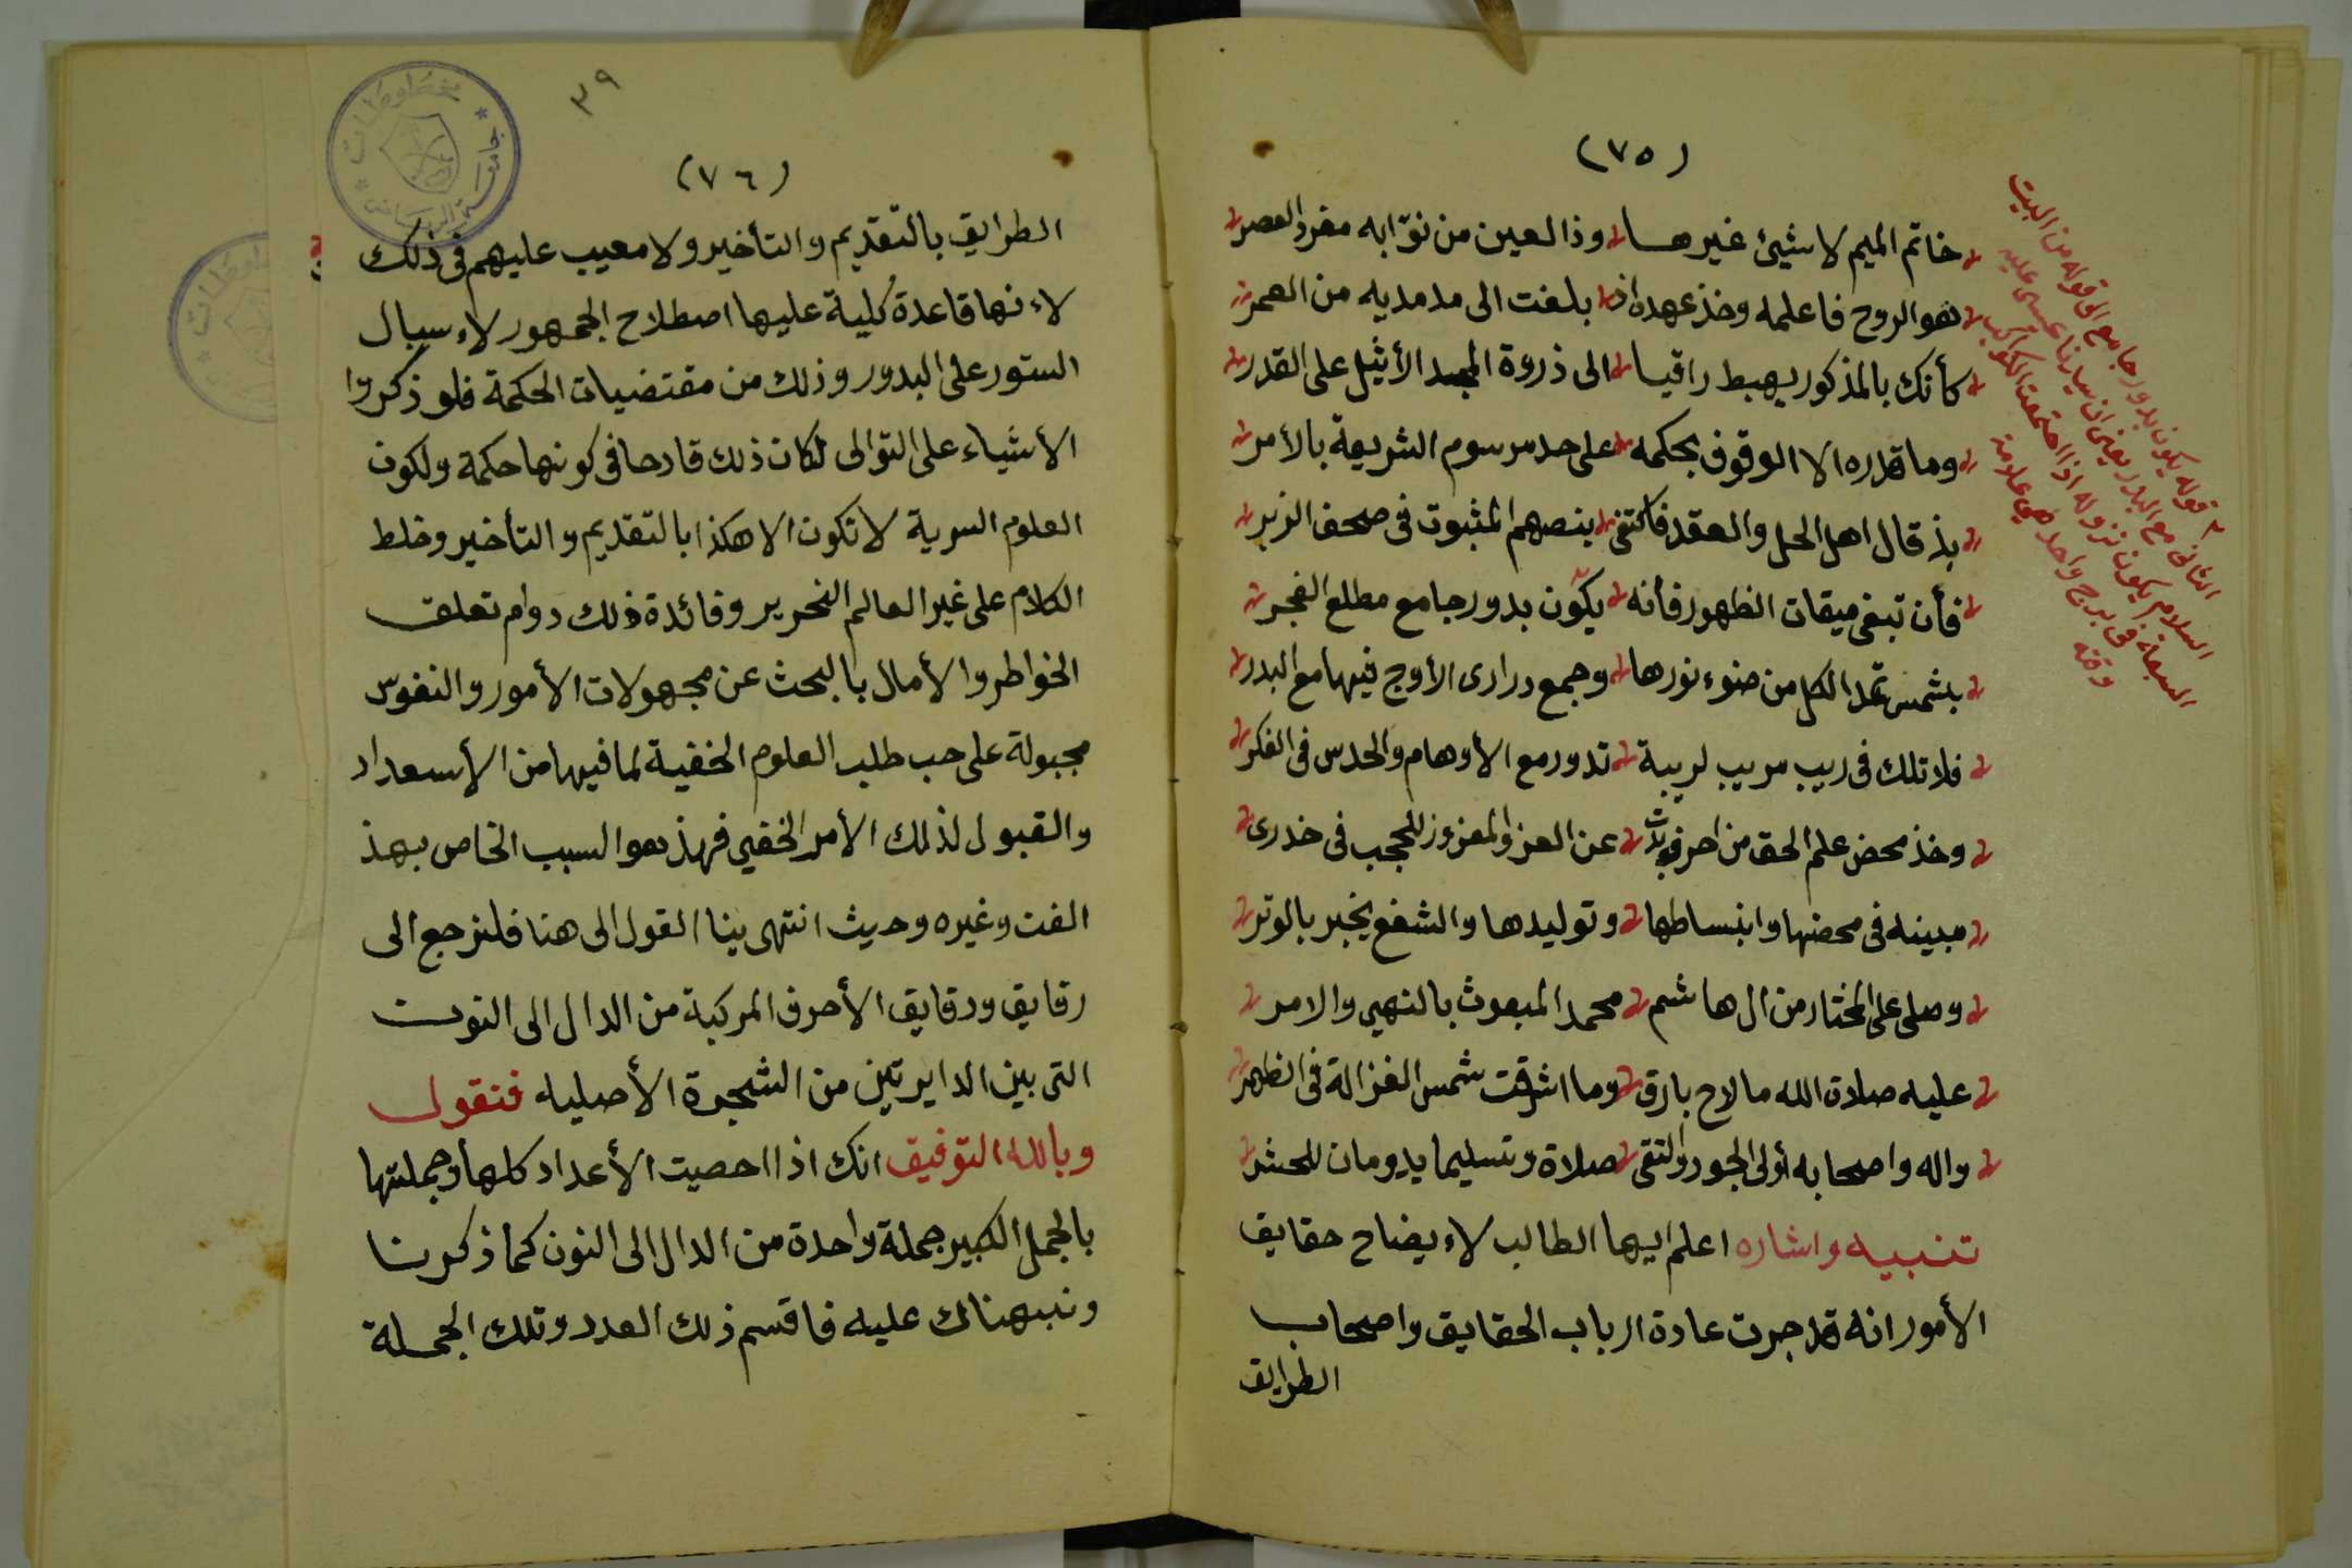 (٧٥)
خاتم الميم لا شيئ غيرها وذا العين من نوّابه مفرد العصر
هو الروح فاعلمه وخذ عهده اذا بلغت الى مد مديه من العمر
كأنك بالمذكور يهبط راقيا الى ذروة المجد الأثيل على القدر
وما قدره الا الوقوف بحكمه على حد مرسوم الشريعة بالأمر
بذ قال اهل الحل والعقد فاكتفى بنصهم المثبوت فى صحف الزبر
فأن تبغى ميقات الظهور فأنه يكون بدور جامع مطلع الفجر
بشمس تمد الكل من ضوء نورها وجمع درارى الأوج فيها مع البدر
فلا تلك فى ريب مريب لريبة تدور مع الأوهام والحدس فى الفكر
وخذ محض علم الحق من احرف بدت عن العز والمعزوز للحجب فى خدرى
مبينه فى محضها وانبساطها وتوليدها والشفع يخبر بالوتر
وصلى على المختار من ال هاشم محمد المبعوث بالنهى والامر
عليه صلاة الله ما لاح بارق وما اشرقت شمس الغزالة فى الظهر
واله واصحابه أولى الجود والتقى صلاة وتسليما يدومان للحشر
تنبيه واشاره اعلم ايها الطالب لاءيضاح حقايق
الأمور انه قد جرت عادة ارباب الحقايق واصحاب
الطرايق
قوله يكون بدور جامع الى قوله من البيت
الثانى مع البدر يعنى ان سيدنا عيسى عليه
السلام يكون نزوله اذا اجتمعت الكواكب
السبعة فى برج واحد هى علامة
وقته
٣٩
(٧٦)
الطرايق بالتقديم والتأخير ولا معيب عليهم فى ذلك
لاءنها قاعدة كلية عليها اصطلاح الجمهور لاءسبال
الستور على البدور وذلك من مقتضيات الحكمة فلو ذكروا
الأشياء على التوالى لكان ذلك قادحا فى كونها حكمة ولكون
العلوم السرية لا تكون الا هكذا بالتقديم والتأخير وخلط
الكلام على غير العالم النحرير وفائدة ذلك دوام تعلق
الخواطر والأمال بالبحث عن مجهولات الأمور والنفوس
مجبولة على حب طلب العلوم الخفية لما فيها من الأسعداد
والقبول لذلك الأمر الخفي فهذ هو السبب الخاص بهذ
الفن وغيره وحيث انتهى بينا القول الى هنا فلنرجع الى
رقايق ودقايق الأحرف المركبة من الدال الى النون
التى بين الدايرتين من الشجرة الأصليه فنقول
وبالله التوفيق انك اذا احصيت الأعداد كلها وجملتها
بالجمل الكبير جملة واحدة من الدال الى النون كما ذكرنا
ونبهناك عليه فاقسم ذلك العدد وتلك الجملة